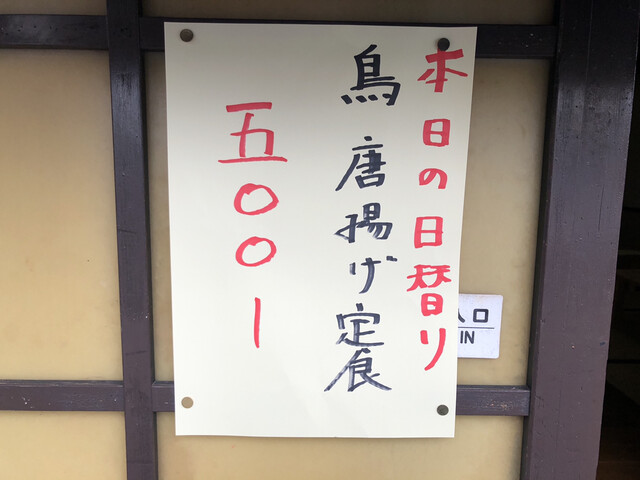 本日の日替り
鳥唐揚げ定食
五〇〇ー
入口
IN